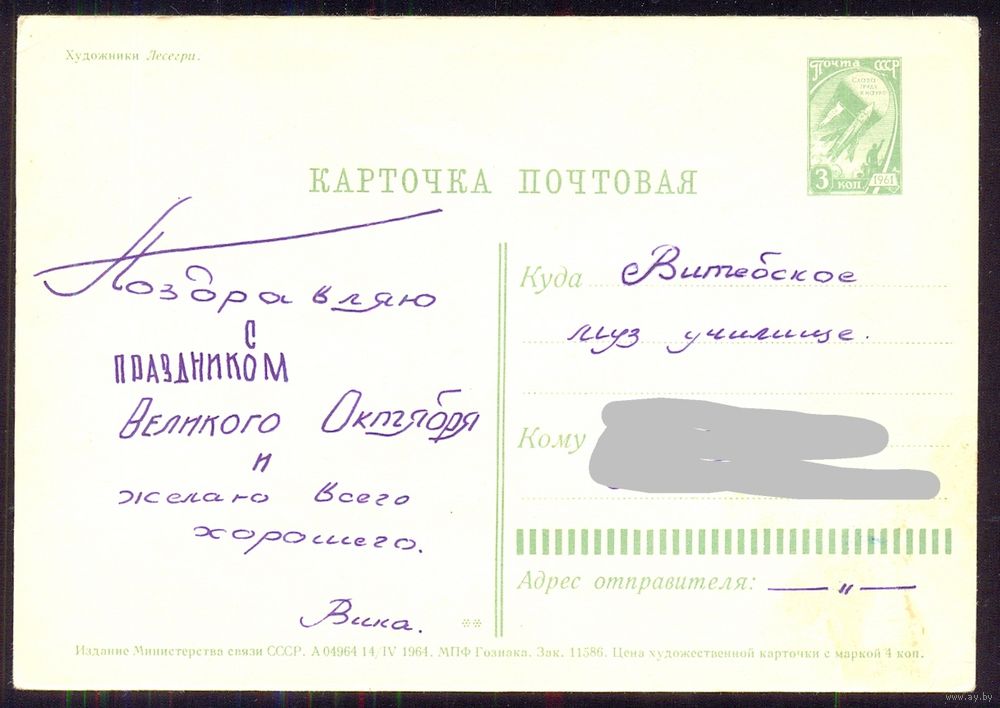 Художники Лесегри.
Почта СССР
Слава
труду
и науке
3 коп
1961
КАРТОЧКА ПОЧТОВАЯ
Поздравляю
с
ПРАЗДНИКОМ
Великого Октября
и
желаю всего
хорошего.
Вика.
Куда Витебское
муз училище.
Кому
Адрес отправителя: — " —
Издание Министерства связи СССР. А 04964 14/IV 1964. МПФ Гознака. Зак. 11586. Цена художественной карточки с маркой 4 коп.
www.ay.by